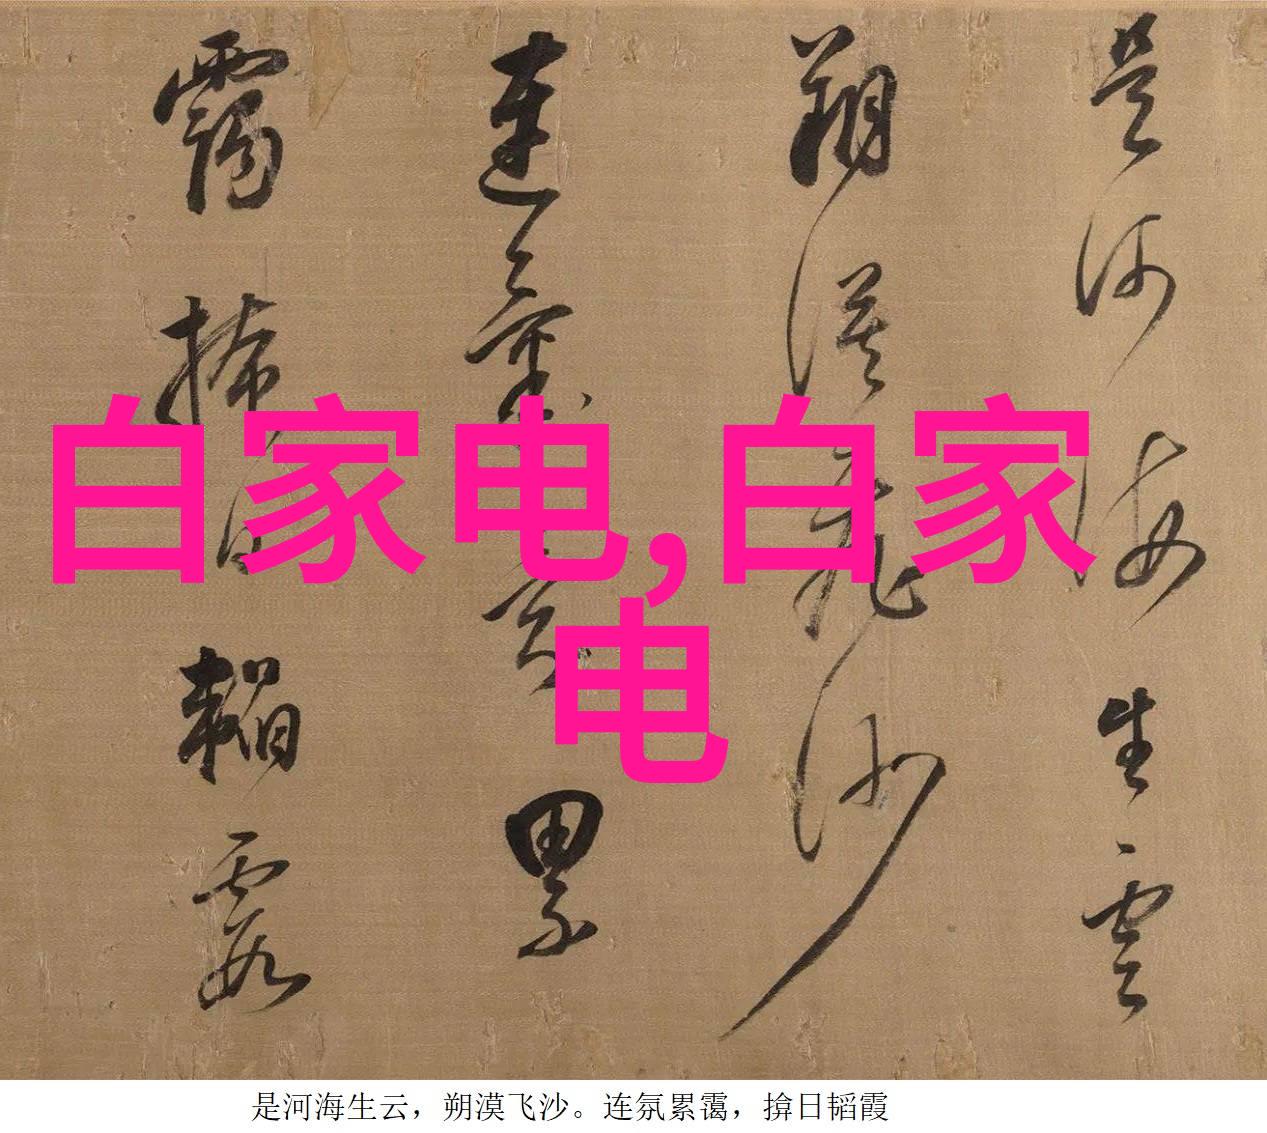 是河海生雲
朔漠飛沙
連氛累
靄掩日韜霞
白家电,白家
电
是河海生云，朔漠飞沙。连氛累霭，揜日韬霞